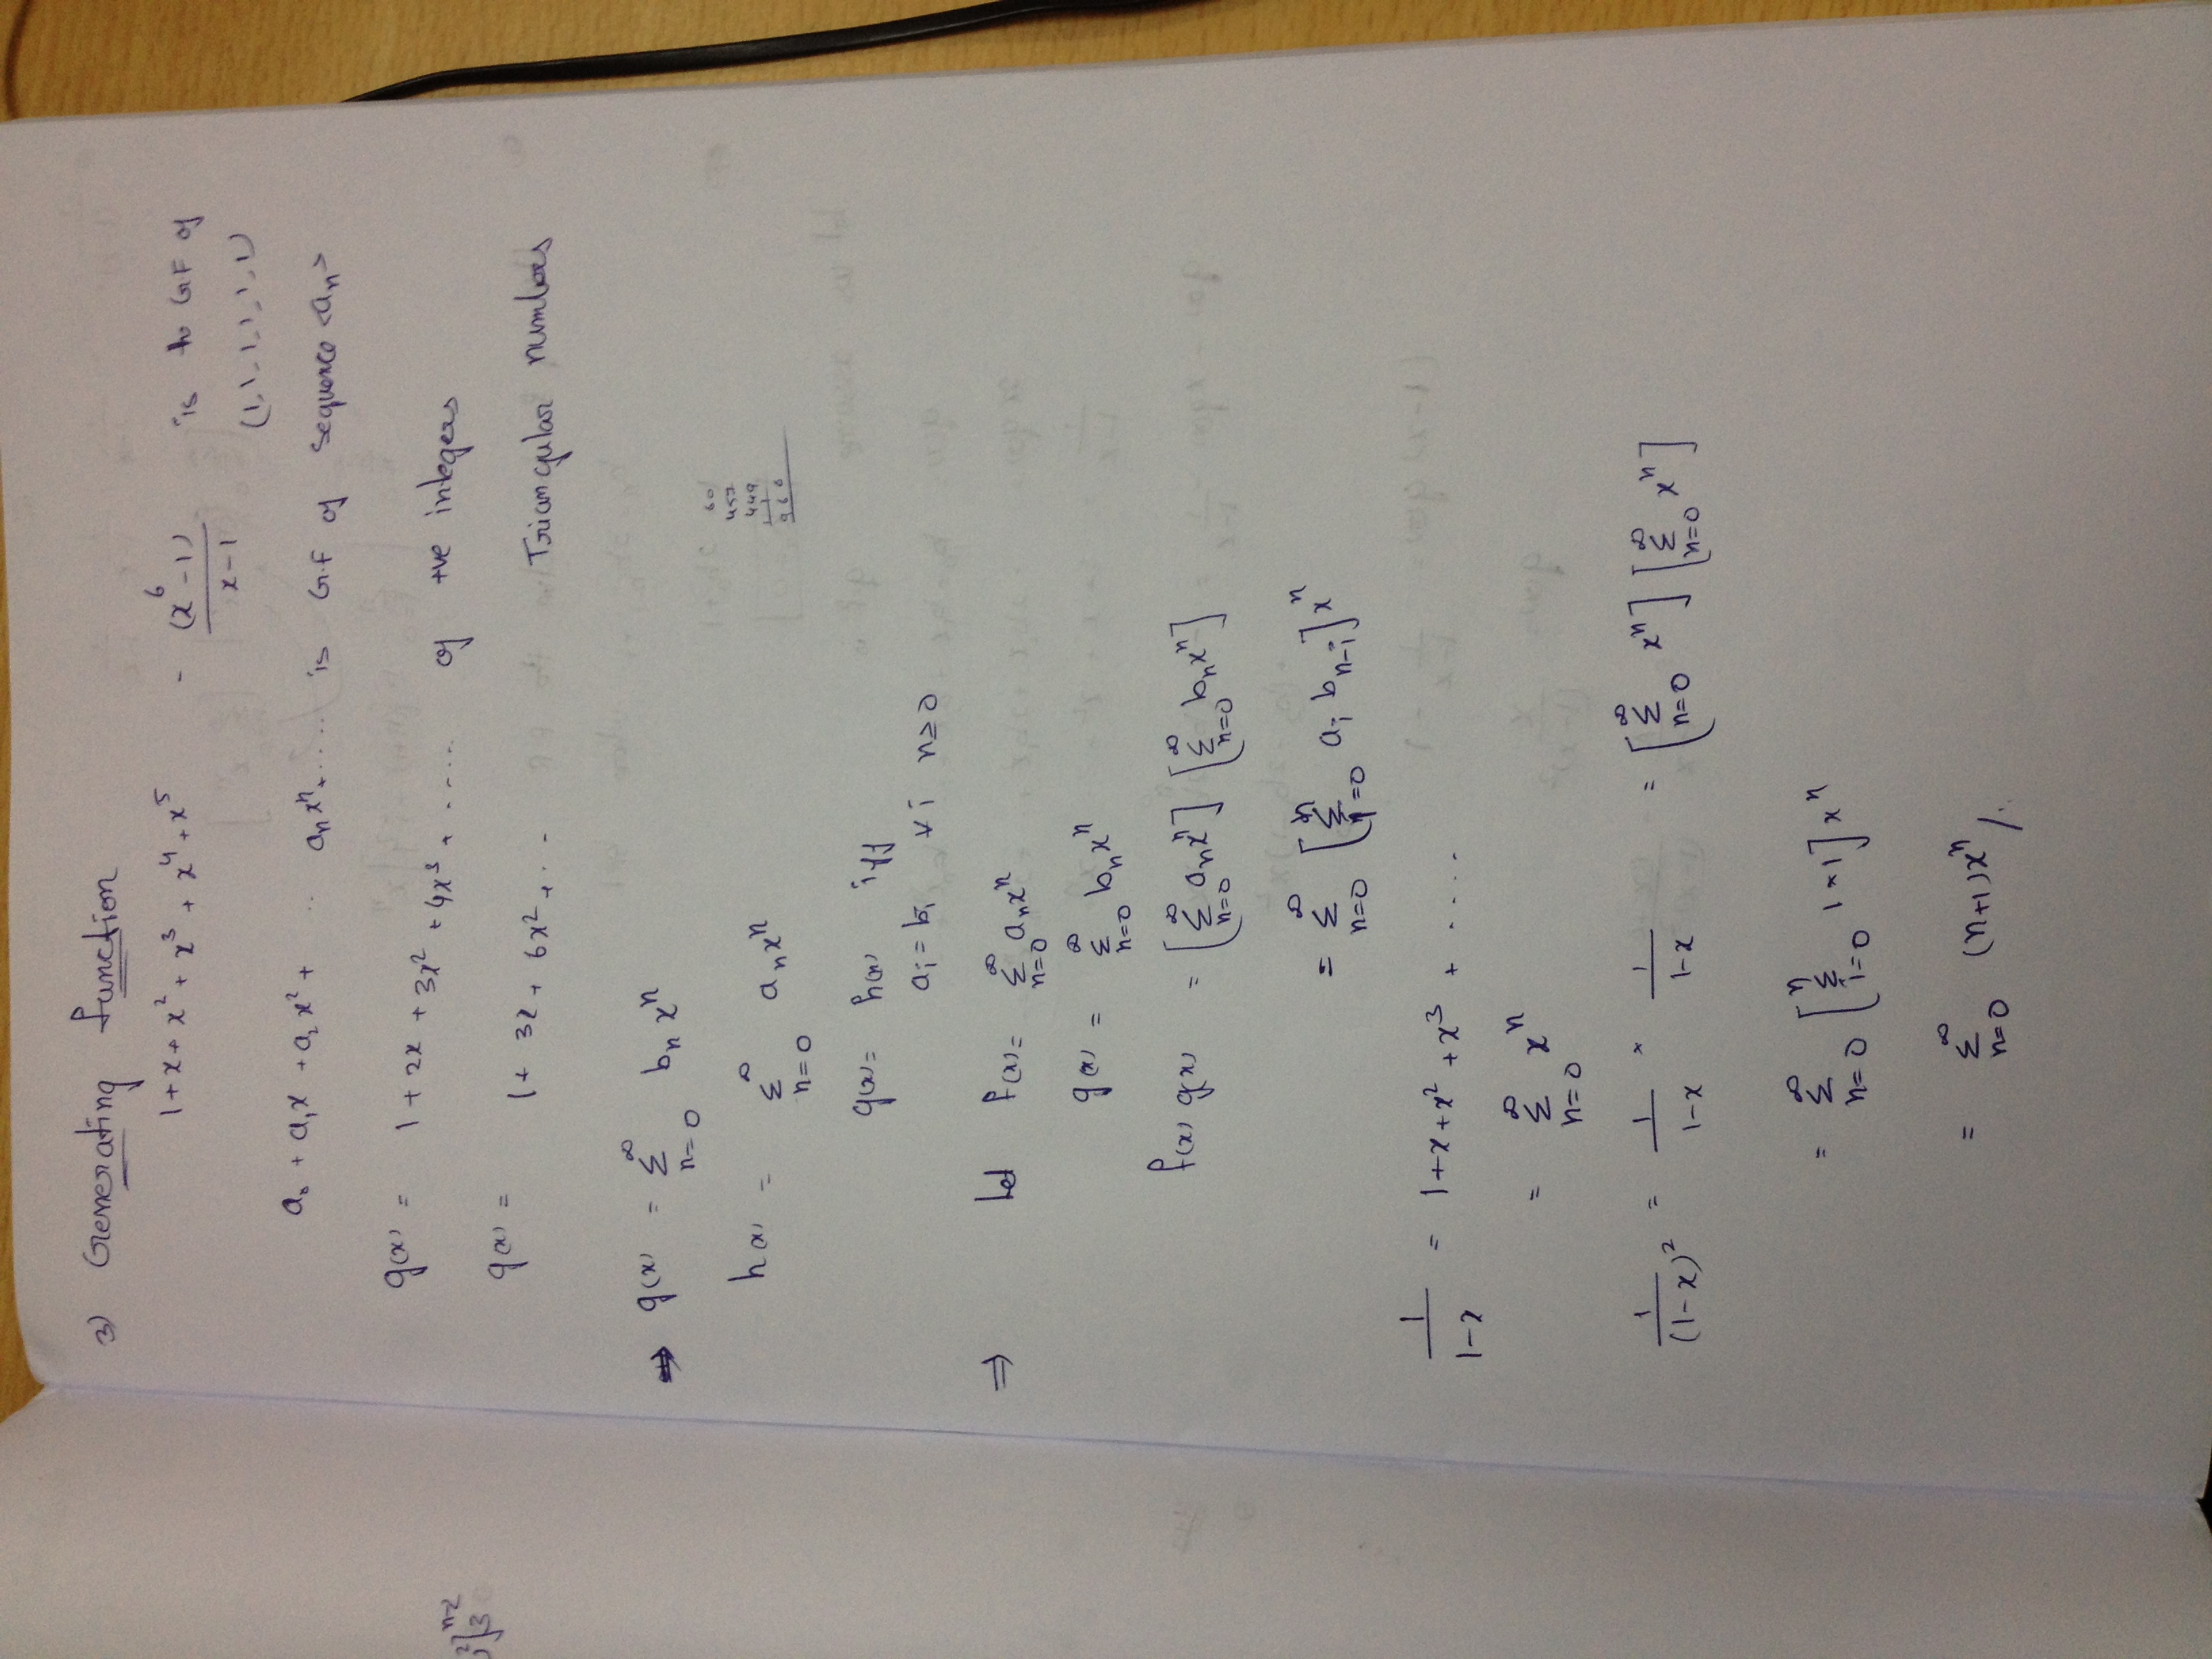 3) Generating function
1 + x + x² + x³ + x⁴ + x⁵ - (x⁶ - 1) / x - 1 is to GF of
(1, 1, 1, 1, 1, 1)
a₀ + a₁x + a₂x² + .. aₙxⁿ + .... is G.F of sequence <aₙ>
g(x) = 1 + 2x + 3x² + 4x³ + ..... of +ve integers
g(x) = 1 + 3x + 6x² + ... Triangular numbers
⇒ g(x) = Σ_{n=0}^{∞} bₙxⁿ
h(x) = Σ_{n=0}^{∞} aₙxⁿ
g(x) = h(x) iff
aᵢ = bᵢ ∀ i n ≥ 0
⇒ let f(x) = Σ_{n=0}^{∞} aₙxⁿ
g(x) = Σ_{n=0}^{∞} bₙxⁿ
f(x) g(x) = [Σ_{n=0}^{∞} aₙxⁿ] [Σ_{n=0}^{∞} bₙxⁿ]
= Σ_{n=0}^{∞} [Σ_{i=0}^{n} aᵢ bₙ₋ᵢ] xⁿ
1 / 1-x = 1 + x + x² + x³ + ....
= Σ_{n=0}^{∞} xⁿ
1 / (1-x)² = 1 / 1-x × 1 / 1-x = [Σ_{n=0}^{∞} xⁿ] [Σ_{n=0}^{∞} xⁿ]
= Σ_{n=0}^{∞} [Σ_{i=0}^{n} 1 × 1] xⁿ
= Σ_{n=0}^{∞} (n+1)xⁿ /.